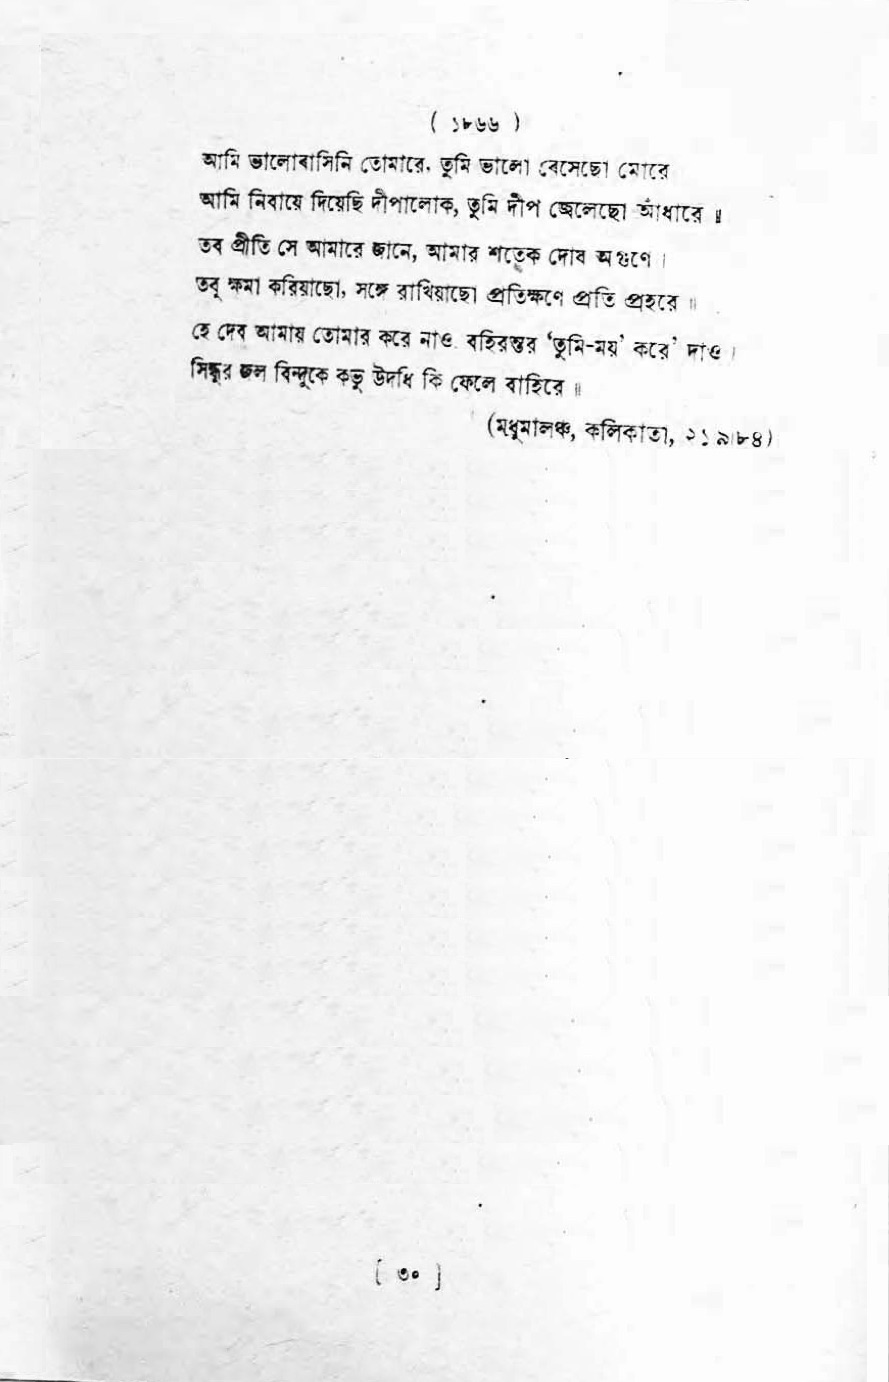 ( ১৮৬৬ )
আমি ভালোবাসিনি তোমারে, তুমি ভালো বেসেছো মোরে
আমি নিবায়ে দিয়েছি দীপালোক, তুমি দীপ জ্বেলেছো আঁধারে ॥
তব প্রীতি সে আমারে জানে, আমার শতেক দোষ অগুণে ।
তবু ক্ষমা করিয়াছো, সঙ্গে রাখিয়াছো প্রতিক্ষণে প্রতি প্রহরে ॥
হে দেব আমায় তোমার করে নাও বহিরন্তর ‘তুমি-ময়’ করে’ দাও ।
সিন্ধুর জল বিন্দুকে কভু উদধি কি ফেলে বাহিরে ॥
(মধুমালঞ্চ, কলিকাতা, ২১৯৮৪)
[ ৩০ ]